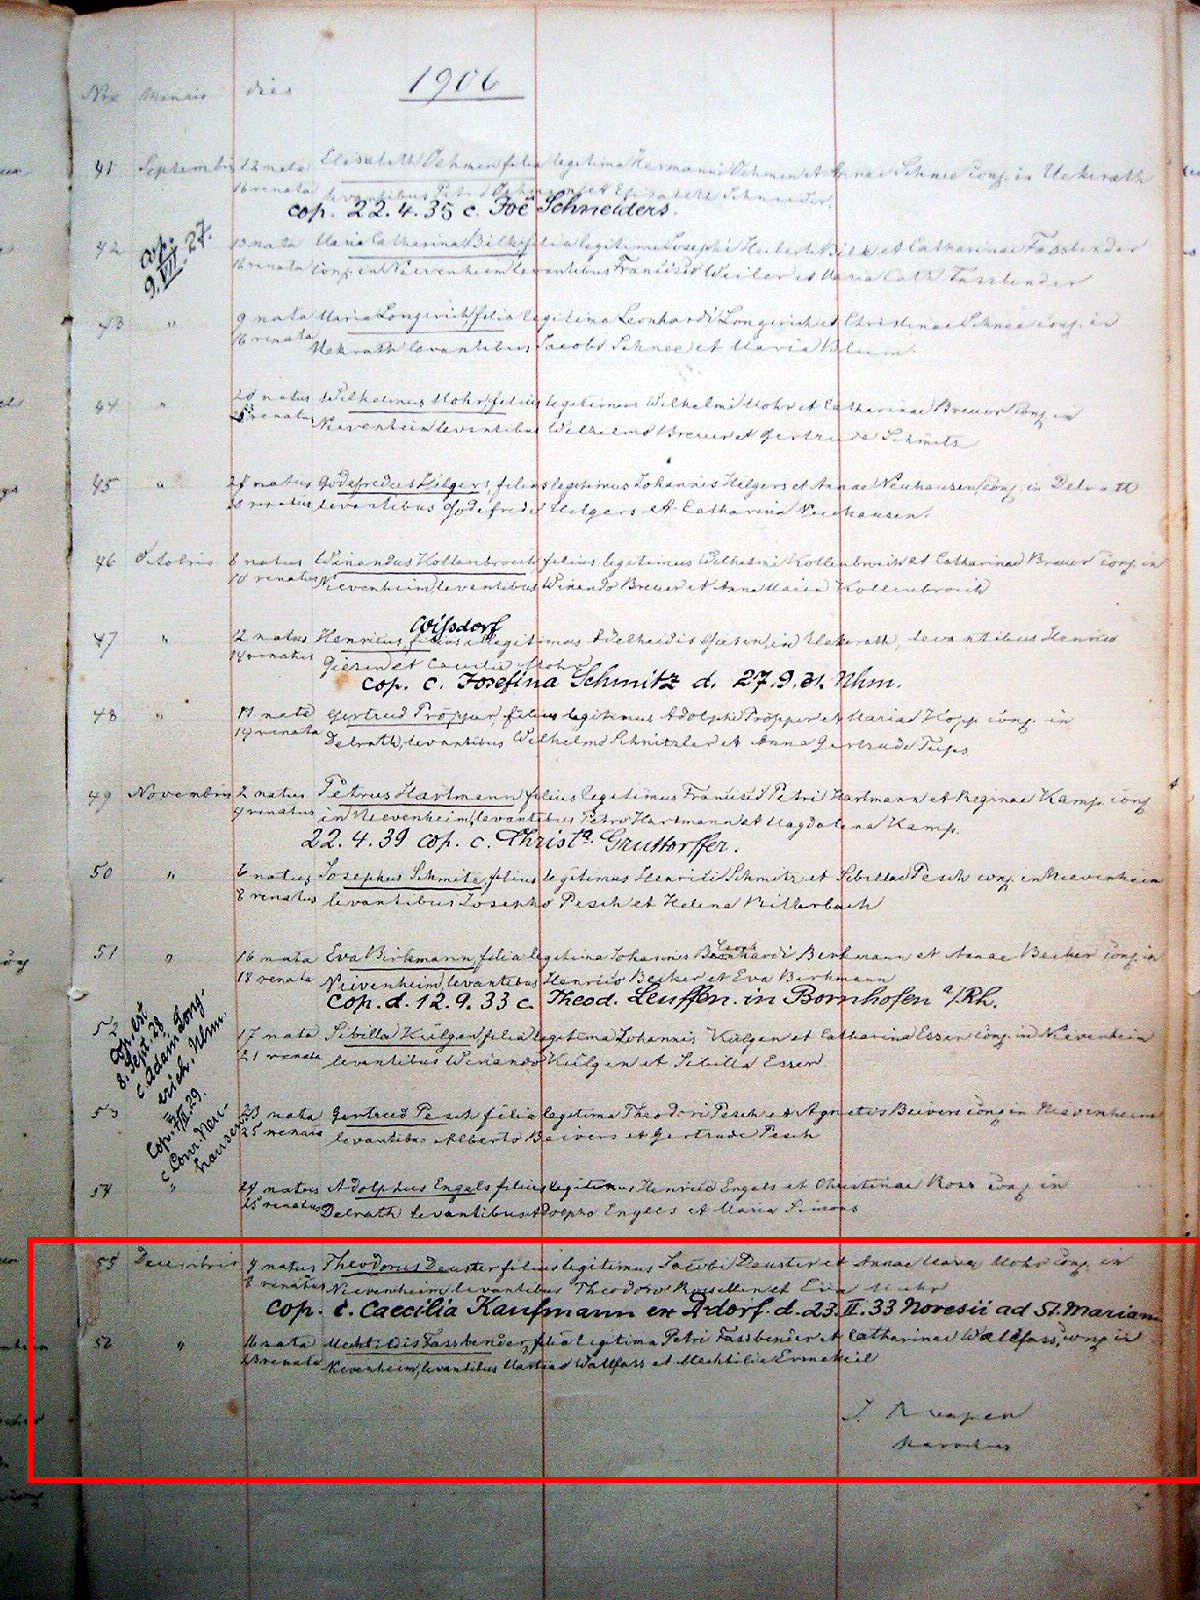 Nro Mensis dies 1906
41 Septembris 12 nata Elisabeth Oehmen filia legitima Hermanni Oehmen et Annae Schnee conj. in Uekerath
16 renata levantibus Petro Oehmen et Elisabeth Schneider.
cop. 22.4.35 c. Joë Schneiders.
42 13 nata Maria Catharina Bilk filia legitima Josephi Huberti Bilk et Catharinae Fassbender
16 renata conj. in Nievenheim levantibus Francisco Weiler et Maria Cath. Fassbender
cop. 9.VII.27.
43 " 9 nata Maria Longerich, filia legitima Leonhardi Longerich et Christinae Schnee conj. in
16 renata Uekrath levantibus Jacobo Schnee et Maria Blum.
44 " 20 natus Wilhelmus Mohr, filius legitimus Wilhelmi Mohr et Catharinae Breuer conj. in
25 renatus Nievenheim levantibus Wilhelmo Breuer et Gertrude Schmitz
45 " 27 natus Godefredus Hilgers, filius legitimus Johannis Hilgers et Annae Neuhausen conj. in Delrath
renatus levantibus Godefredo Hilgers et Catharina Neuhausen.
46 Octobris 8 natus Winandus Kollenbroich filius legitimus Wilhelmi Kollenbroich et Catharinae Breuer conj. in
10 renatus Nievenheim, levantibus Winando Breuer et Anna Maria Kollenbroich
Wissdorf
47 " 12 natus Henricus, filius illegitimus Adelheidis Giesen, in Uekerath, levantibus Henrico
14 renatus Giesen et Caecilia Mohr
cop. c. Josefina Schmitz d. 27.9.31. Nhm.
48 " 17 nata Gertrud Pröpper, filius legitimus Adolphi Pröpper et Mariae Hopp conj. in
19 renata Delrath, levantibus Wilhelmo Schnitzler et Anna Gertrude Tups
49 Novembris 2 natus Petrus Hartmann filius legitimus Francisci Petri Hartmann et Reginae Kamp conj
4 renatus in Nievenheim, levantibus Petro Hartmann et Magdalena Kamp.
22.4.39 cop. c. Christa. Gruttorffer.
50 " 6 natus Josephus Schmitz, filius legitimus Henrici Schmitz et Sibillae Pesch conj. in Nievenheim
8 renatus levantibus Josepho Pesch et Helena Bitterbach
51 " 16 nata Eva Birkmann, filia legitima Johannis Bernhardi Berkmann et Annae Becker conj. in
18 renata Nievenheim, levantibus Henrico Becker et Eva Berkmann
cop. d. 12.9.33 c. Theod. Leuffen. in Bornhofen a/Rh.
52 17 nata Sibilla Külgen filia legitima Johannis Külgen et Catharina Essen conj. in Nievenheim
21 renata levantibus Winando Külgen et Sibilla Essen.
cop. est
8. Sept. 28
c. Adam Long-
erich. Nhm.
53 23 nata Gertrud Pesch filia legitima Theodori Pesch et Agnetis Beivers conj. in Nievenheim
25 renata levantibus Alberto Beivers et Gertrude Pesch
cop. 29.
c. Conr. Neu-
hausen
54 " 24 natus Adolphus Engels filius legitimus Henrici Engels et Christinae Ross conj. in
25 renatus Delrath levantibus Adolpho Engels et Maria Simons
55 Decembris 7 natus Theodorus Deuster filius legitimus Jacobi Deuster et Annae Maria Mohr conj. in
8 renatus Nievenheim, levantibus Theodoro Rosellen et Eva Mohr
cop. c. Caecilia Kaufmann ex Adorf. d. 23.II.33 Novesii ad St. Mariam
56 " 16 nata Mechtildis Fassbender, filia legitima Petri Fassbender et Catharinae Wallfass, conj in
renata Nievenheim, levantibus Martino Wallfass et Mechtilde Ermekeil